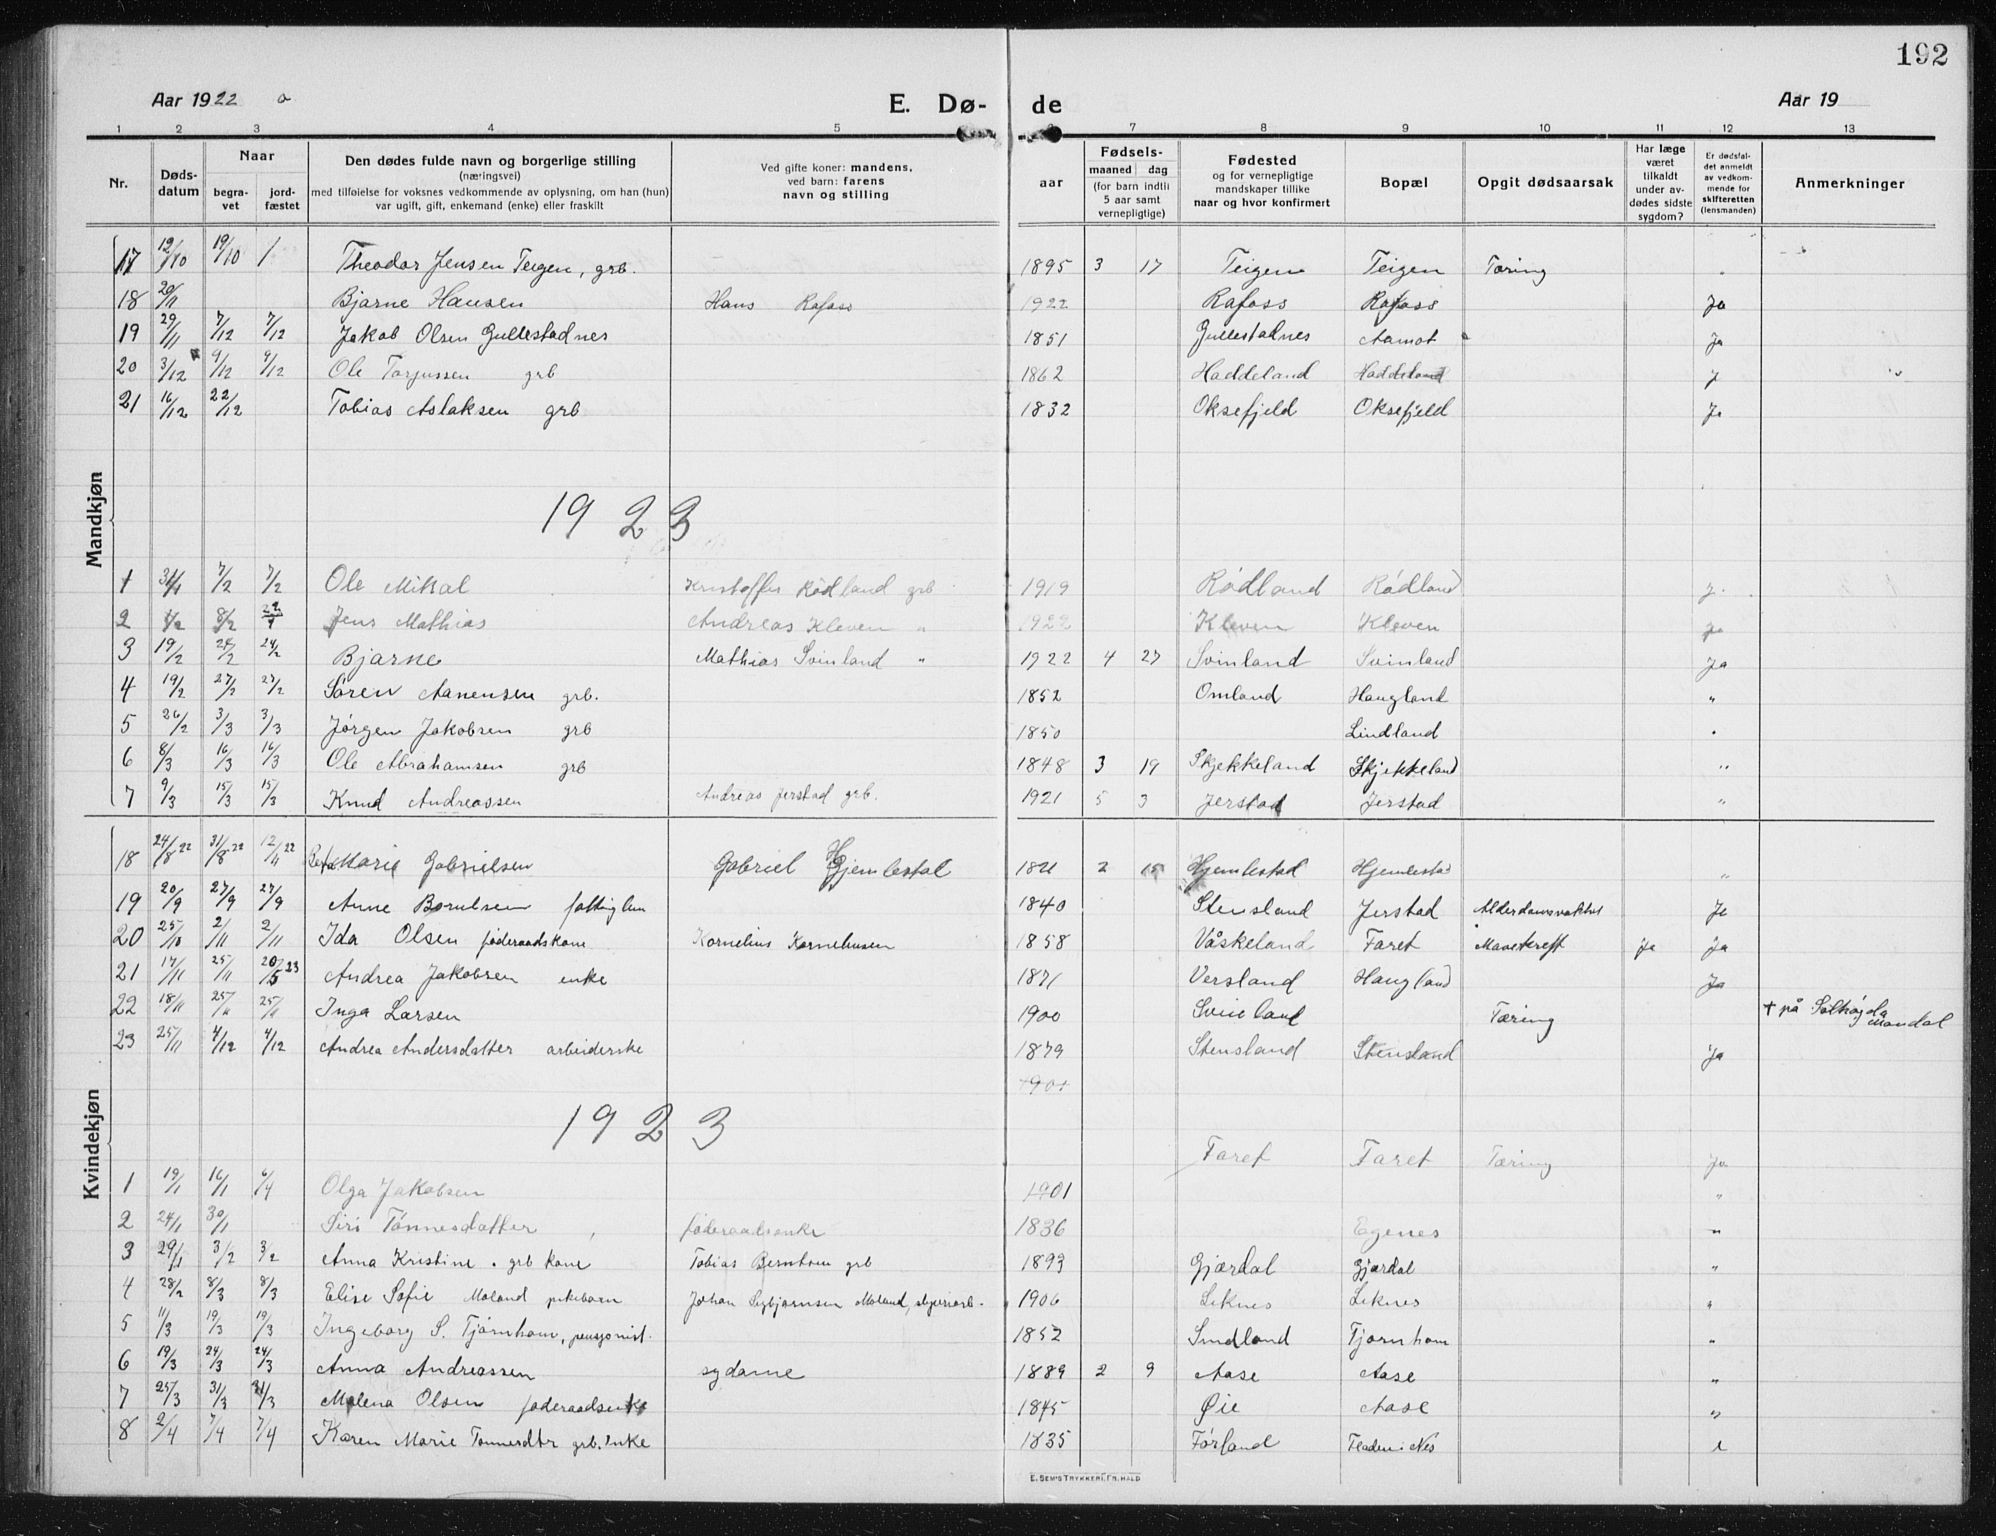 192
Aar 1922
E. Dø- de
Aar 19
1 2 3 4 5 7 8 9 10 11 12 13
Nr.
Døds-datum
Naar
begra-vet
jord-fæstet
Den dødes fulde navn og borgerlige stilling
(næringsvei)
med tilføielse for voksnes vedkommende av oplysning, om han (hun)
var ugift, gift, enkemand (enke) eller fraskilt
Ved gifte koner: mandens,
ved barn: farens
navn og stilling
aar
Fødsels-
maaned dag
(for barn indtil
5 aar samt
vernepligtige)
Fødested
og for vernepligtige
mandskaper tillike
naar og hvor konfirmert
Bopæl
Opgit dødsaarsak
Har læge
været
tilkaldt
under av-
dødes sidste
sygdom?
Er dødsfal-
det anmeldt
av vedkom-
mende for
skifteretten
(lensmanden)
Anmerkninger
Mandkjøn
17 12/10 19/10 Theodor Jensen Teigen, grb. 1895 3 17 Teigen Teigen Tæring
18 20/11 Bjarne Hansen Hans Rafoss 1922 Rafoss Rafoss Ja
19 29/11 7/12 7/12 Jakob Olsen Gullestadnes 1851 Gullestadnes Aamot Ja
20 3/12 9/12 9/12 Ole Torjussen grb 1862 Haddeland Haddeland J
21 16/12 22/12 Tobias Aslaksen grb 1832 Oksefjeld Oksefjeld Ja
1923
1 31/1 7/2 7/2 Ole Mikal Kristoffer Rødland grb 1919 Rødland Rødland J.
2 8/2 Jens Mathias Andreas Kleven " 1922 Kleven Kleven Ja
3 19/2 24/2 24/2 Bjarne Mathias Svinland " 1922 4 27 Svinland Svinland Ja
4 19/2 27/2 27/2 Søren Aanensen grb. 1852 Omland Haugland "
5 26/2 3/3 3/3 Jørgen Jakobsen grb 1850 Lindland
6 8/3 16/3 16/3 Ole Abrahamsen grb 1848 3 19 Skjekkeland Skjekkeland "
7 9/3 15/3 15/3 Knud Andreassen Andreas Jerstad grb. 1921 5 3 Jerstad Jerstad "
Kvindekjøn
18 24/8 22 31/8 22 12/11 22 Marie Gabrielsen Gabriel Hjemlestad 1821 2 15 Hjemlestad Hjemlestad "
19 20/9 27/9 27/9 Anne fattiglem 1840 Stensland Jerstad Ja
20 25/10 2/11 2/11 Ida Olsen føderaadskone Kornelius Korneliusen 1858 Våskeland Faret Mavekreft Ja Ja
21 17/11 25/11 20/5 23 Andrea Jakobsen enke 1871 Versland Haugland Ja
22 18/11 25/11 25/11 Inga Larsen 1900 Svinland Tæring † på Solhøgda Mandal
23 25/11 4/12 4/12 Andrea Andersdatter arbeiderske 1879 Stensland Stensland Ja
1901
1923
Faret Faret Tæring Ja
1 19/1 16/1 6/4 Olga Jakobsen 1901 "
2 24/1 30/1 Siri Tønnesdatter føderaadsenke 1836 Egenes "
3 29/1 3/2 3/2 Anna Kristine. grb kone Tobias grb 1893 Gjærdal Gjærdal "
4 28/2 8/3 8/3 Elise Sofie Moland pikebarn Johan Moland, 1906 Leknes Leknes "
5 11/3 19/3 19/3 Ingeborg S. Tjørnhom, pensjonist. 1852 Sindland Tjørnhom "
6 19/3 24/3 24/3 Anna Andreassen sydame 1889 2 9 Aase Aase "
7 25/3 31/3 31/3 Malena Olsen føderaadsenke 1845 Øie Aase "
8 2/4 7/4 7/4 Karen Marie Tønnesdtr grb. enke 1835 Førland
E. SEM'S TRYKKERI, FR. HALD